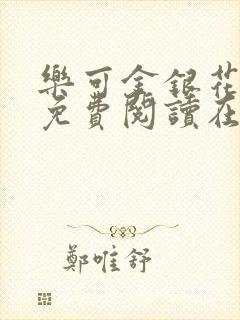 樂可金銀花
免費閱讀在
鄭唯舒